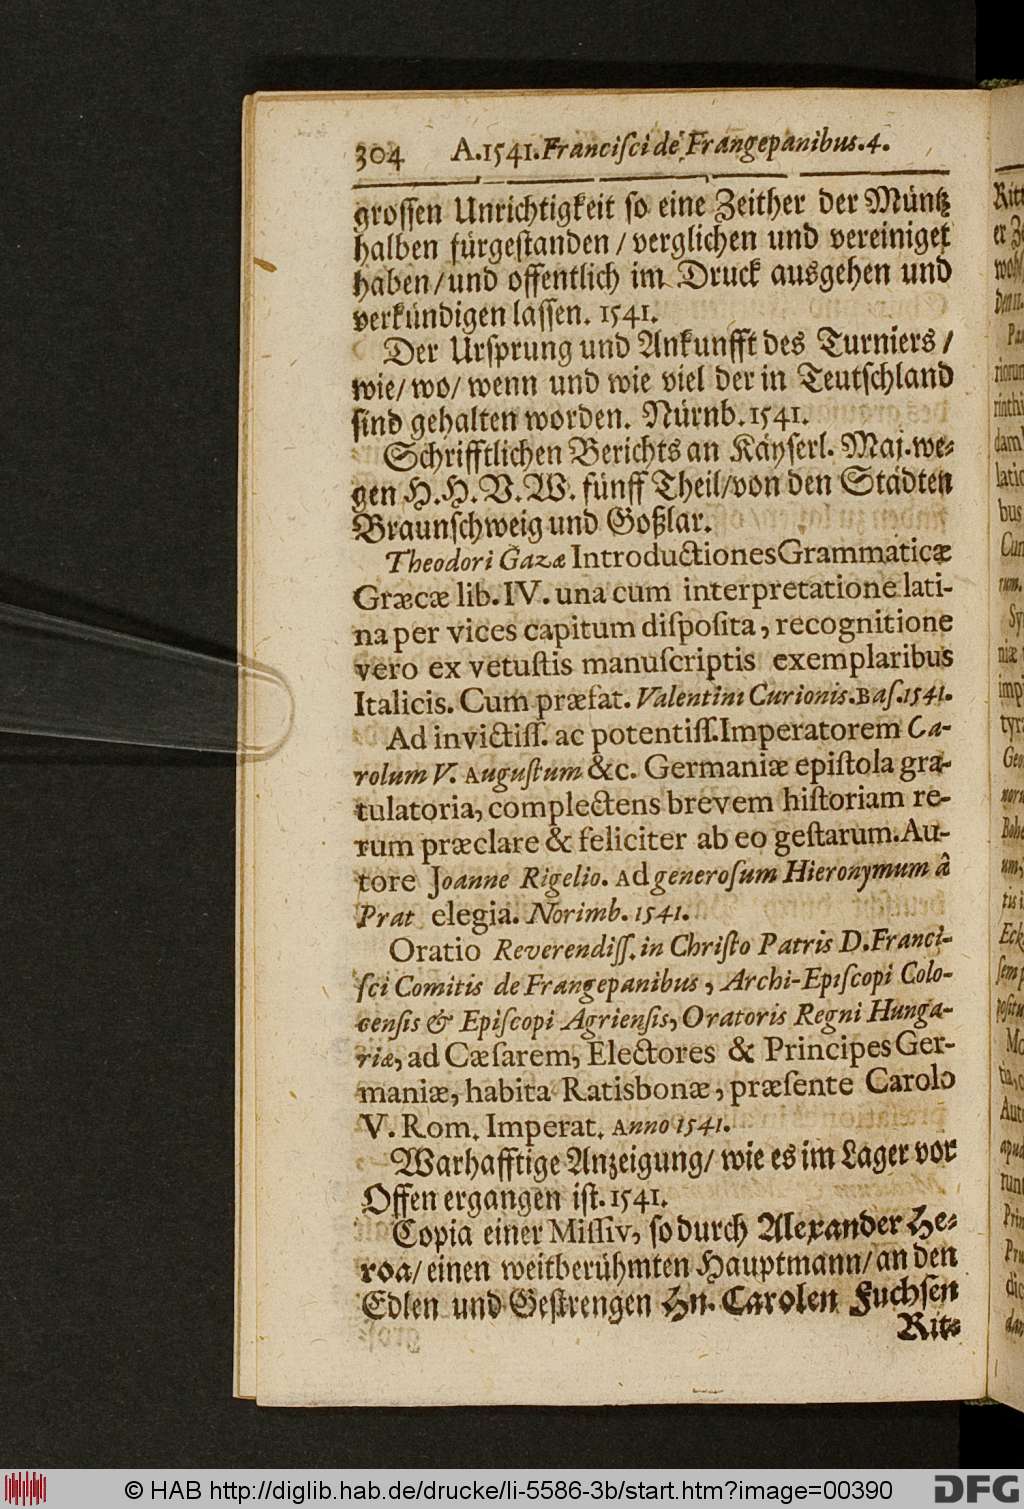 304 A.1541. Franciſci de Frangepanibus. 4.
groſſen Unrichtigkeit ſo eine Zeither der Müntz
halben fürgeſtanden / verglichen und vereiniget
haben / und offentlich im Druck ausgehen und
verkündigen laſſen. 1541.
Der Urſprung und Ankunfft des Turniers /
wie / wo / wenn und wie viel der in Teutſchland
ſind gehalten worden. Nürnb. 1541.
Schrifftlichen Berichts an Käyſerl. Maj. we-
gen H. H. V. W. fünff Theil / von den Städten
Braunſchweig und Goßlar.
Theodori Gazæ Introductiones Grammaticæ
Græcæ lib. IV. una cum interpretatione lati-
na per vices capitum diſpoſita, recognitione
vero ex vetuſtis manuſcriptis exemplaribus
Italicis. Cum præfat. Valentini Curionis. Baſ. 1541.
Ad invictiſſ. ac potentiſſ. Imperatorem Ca-
rolum V. Auguſtum &c. Germaniæ epiſtola gra-
tulatoria, complectens brevem hiſtoriam re-
rum præclare & feliciter ab eo geſtarum. Au-
tore Joanne Rigelio. Ad generoſum Hieronymum â
Prat elegia. Norimb. 1541.
Oratio Reverendiſſ. in Chriſto Patris D. Franci-
ſci Comitis de Frangepanibus, Archi-Epiſcopi Colo-
cenſis & Epiſcopi Agrienſis, Oratoris Regni Hunga-
riæ, ad Cæſarem, Electores & Principes Ger-
maniæ, habita Ratisbonæ, præſente Carolo
V. Rom. Imperat. Anno 1541.
Warhafftige Anzeigung / wie es im Lager vor
Offen ergangen iſt. 1541.
Copia einer Miſſiv, ſo durch Alexander He-
roa / einen weitberühmten Hauptmann / an den
Edlen und Geſtrengen Hn. Carolen Fuchſen
Rit-
© HAB http://diglib.hab.de/drucke/li-5586-3b/start.htm?image=00390
DFG